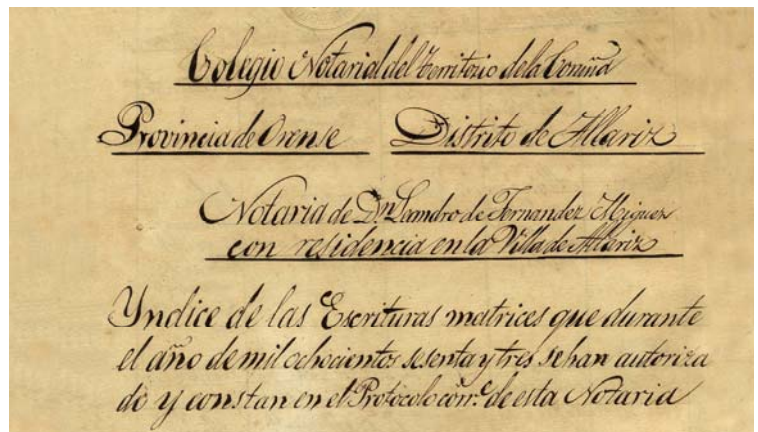 Colegio Notarial del territorio dela Coruña
Provincia de Orense Distrito de Allariz
Notaria de Dn Leandro de Fernandez Miguez
con residencia en la Villa de Allariz
Yndice de las Escrituras matrices que durante
el año de mil ochocientos sesenta y tres se han autoriza
do y constan en el Protocolo corr.e de esta Notaria